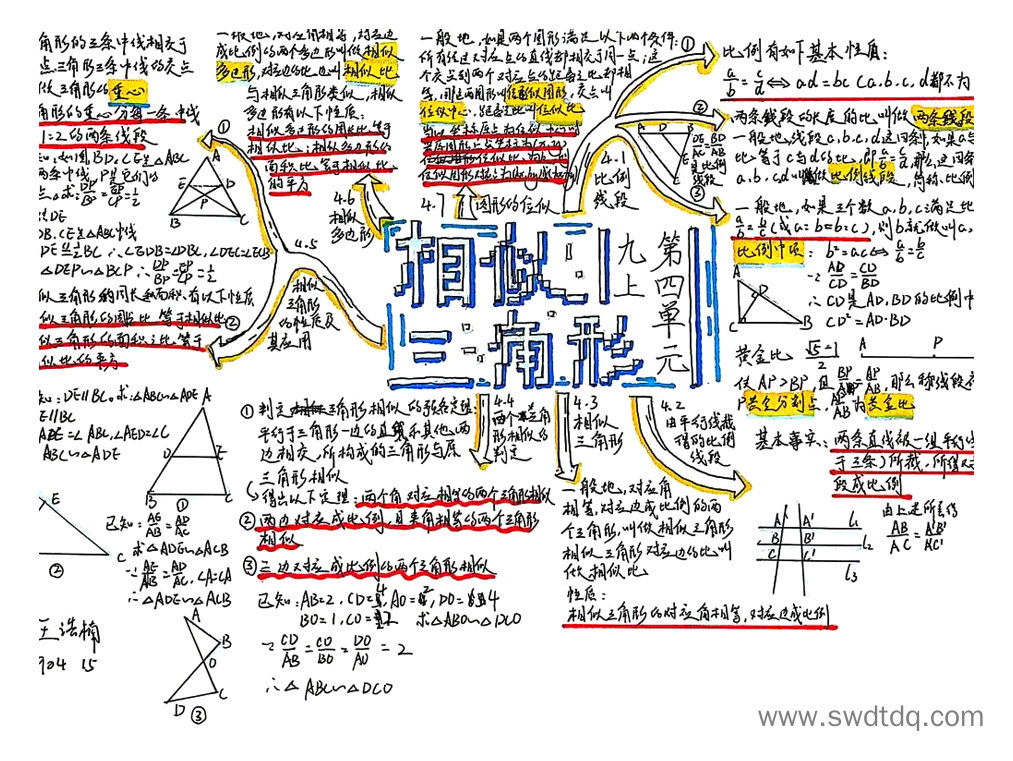 角形的三条中线相交于
点.三角形三条中线的交点
做三角形的重心
角形的重心分每一条中线
1=2的两条线段
知:如图BD.CE是△ABC
两条中线,P是它们的
点.求:DP/BP=EP/CP=1/2
DE
DB.CE或AC中线
DE∥=1/2BC ∴∠EDB=∠DBC,∠DEC=∠ECB
△DEP∽△BCP ∴DP/BP=EP/CP=1/2
似三角形的周长和面积有以下性质
似三角形的周长比等于相似比②
似三角形的面积之比等于
似比的平方
①
A
E D
P
B C
一般地,对应角相等,对应边
成比例的两个多边形叫做相似
多边形,对应边的比叫相似比
与相似三角形类似,相似
多边形有以下性质:
相似多边形的周长比等于
相似比;相似多边形的
面积比等于相似比
的平方
4.6
相似
多边形
4.5
相似
三角形
的性质及
其应用
一般地,如果两个图形满足以下两个条件:
所有经过对应点的直线都相交于同一点;这
个交点到两个对应点的距离之比都相
等,那这两图形叫位似图形,交点叫
位似中心,距离比叫位似比
4.7 图形的位似
4.1
比例
线段
A D B
E
C
DE/AC=BD/AB
是比例
线段
①
②
③
比例有如下基本性质:
a/b=c/d⇔ad=bc(a.b.c.d都不为
两条线段的长度的比叫做两条线段
一般地,线段a,b,c,d这四条,如果a与
比等于c与d的比,即a/b=c/d,那么,这四条
a.b.cd叫做比例线段,简称:比例
一般地,如果三个数a,b,c满足比
a/b=b/c(或a:b=b:c),则b就做叫a,
比例中项: b²=ac⇔a/b=b/c
∵AD/CD=CD/BD
∴CD是AD.BD的比例中
CD²=AD·BD
A
D
C B
黄金比 √5-1/2 A P
使AP>BP,且BP/AP=AP/AB,那么称线段
P黄金分割点,AP/AB为黄金比
基本事实:两条直线被一组平行线
于三条)所截,所得对
段成比例
由上述所意得
AB/AC=A'B'/A'C'
A A' l₁
B B' l₂
C C' l₃
相似
三角形
九上
第四单元
4.4
两个三角
形相似的
判定
4.3
相似
三角形
4.2
由平行线截
得的比例
线段
①判定三角形相似的预备定理:
平行于三角形一边的直线和其他两
边相交,所构成的三角形与原
三角形相似
得出以下定理:两个角对应相等的两个三角形相似
②两边对应成比例,且夹角相等的两个三角形
相似
③三边对应成比例的两个三角形相似
已知:AB=2,CD=4,AO=2,DO=4
BO=1,CO=2 求△ABO∽△DCO
∵CD/AB=CO/BO=DO/AO=2
∴△ABC∽△DCO
一般地,对应角
相等,对应边成比例的两
个三角形,叫做相似三角形
相似三角形对应边的比叫
做相似比
性质:
相似三角形的对应角相等,对应边成比例
知:DE∥BC。求△ABC∽△ADE
E∥BC
ADE=∠ABC,∠AED=∠C
ABC∽△ADE
A
D E
B C
①
已知:AE/AB=AD/AC
求△ADE∽△ACB
∵AE/AB=AD/AC,∠A=∠A
∴△ADE∽△ACB
E
C
②
A
B
O
C
D ③
王浩楠
904 15
www.swdtdq.com